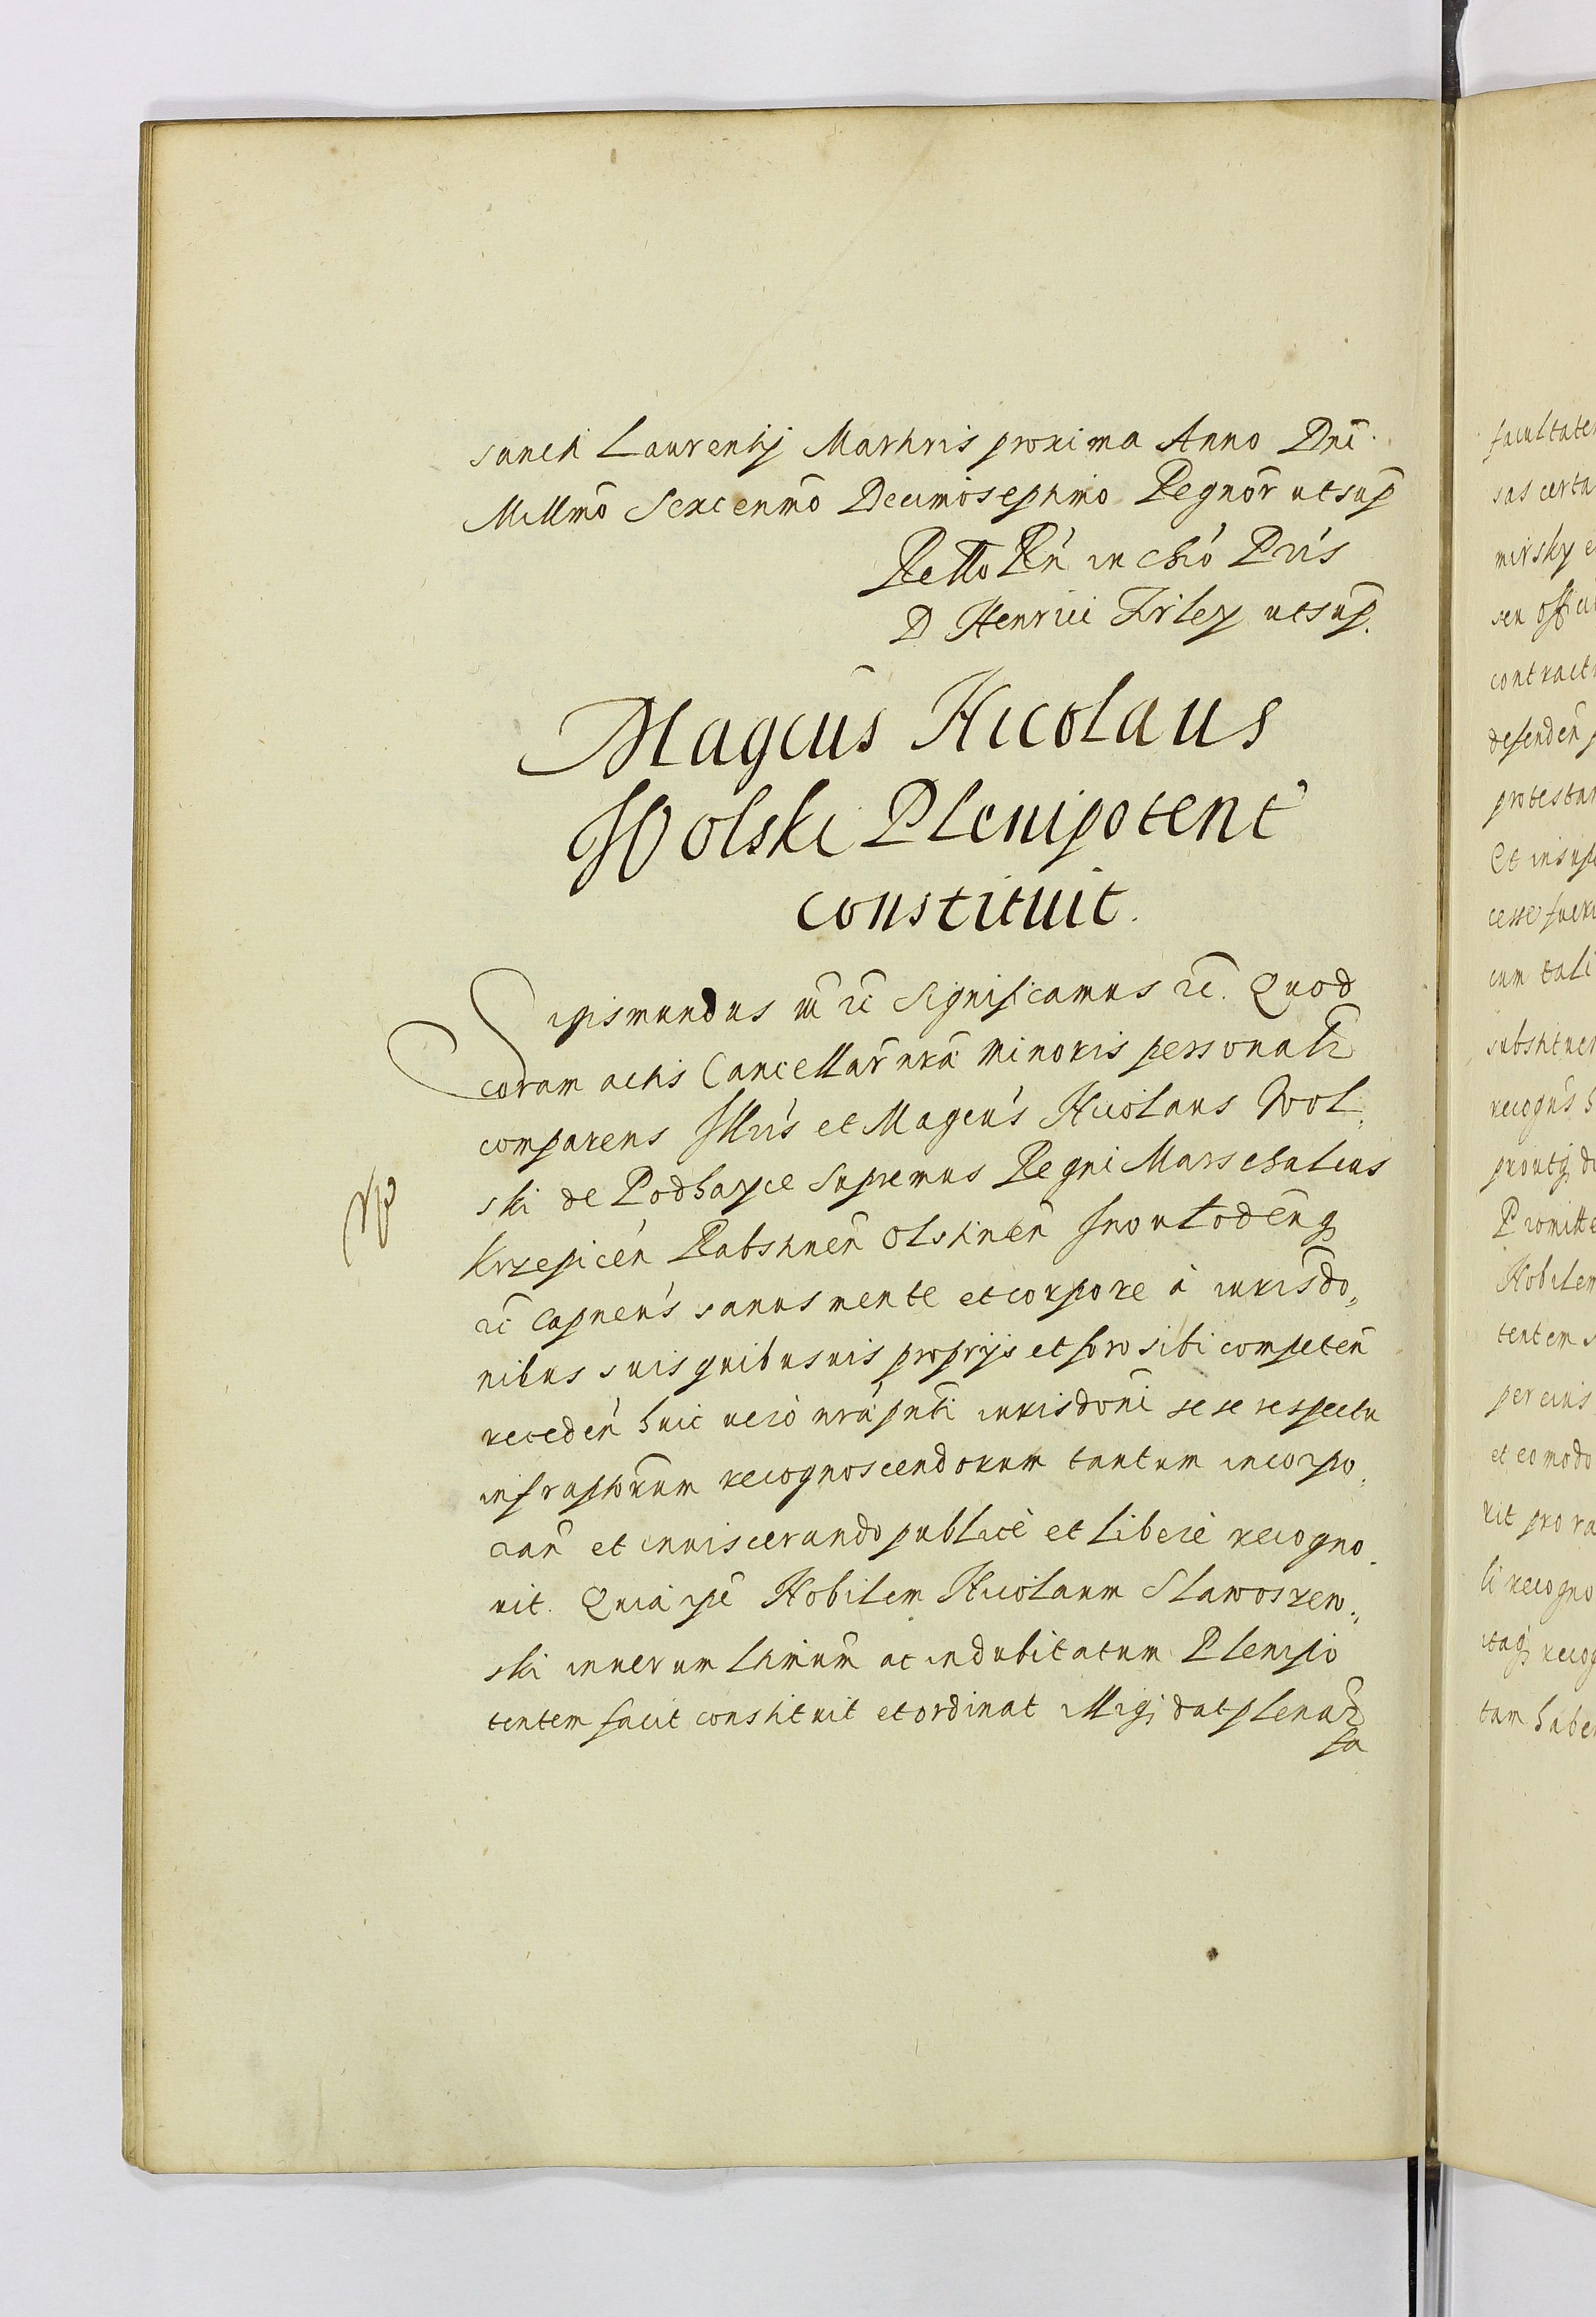 sancti Laurentij Martiris proxima Anno Dnī.
Millmō Sexcenmō Decimoseptimo Regnōr utsup̄
Retto Rn̄ in Chió Pris
D Henrici Firley utsup̄.
Magcūs Nicolaus
Wolski Plenipotent
constituit.
Sigismundus tū rc̄ Significamus rc̄. Quod
coram actis Cancellar̄ nrā Minoris personalr̄
comparens Illrīs et Magcūs Nicolaus Wol,
ski de Podhayce Supremus Regni Marschalcus
Krzepicēn Rabstinēn Olstinēn Inoulodēnq
rc̄ Capneūs sanus mente et corpore à iurisdō,,
nibus suis quibusuis proprijs et foro sibi competēn
recedēn huic uerò nrā pntī iurisdōnī se se respectu
infrapttorum recognoscendorum tantum incorpo,
ran̄ et inuiscerando publicè et liberè recogno
uit. Quia ipē Nobilem Nicolaum Slawoszew,,
ski in uerum ltimūm ac indubitatum Plenipo
tentem facit constituit et ordinat illiq; dat plenar̄
fa
facultate
sas certa
mirsky e
seu offici
contract
defendēn p
protestan
Et insup
cesse fueri
cum tali
substituen
recogn̄s h
proutq; d
Promitte
Nobilem
tentem s
per eius
et eo modo
rit pro ra
li recogno
itaq; recog
tam habe